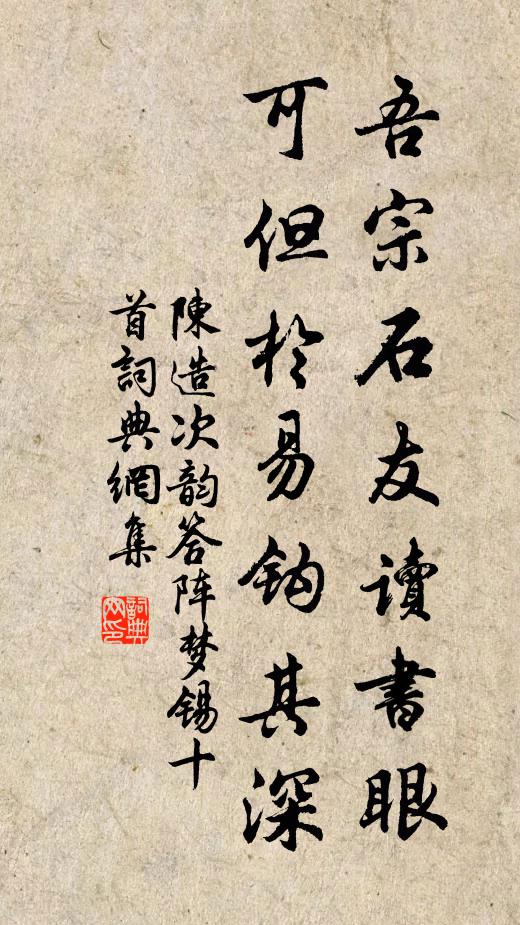 吾宗石友读書眼
可但於易钩其深
陳造次韵答阵梦锡十
首詞典網集
詞典
网印